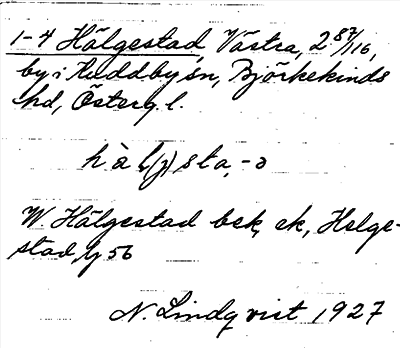 1-4 Hälgestad, Västra, 2 87/116,
by i Kuddby sn, Björkekinds
hd, Österg. l.
hàl(j)sta, -ə
W Hälgestad bek, ek, Helge-
stad, y 56
N. Lindqvist 1927